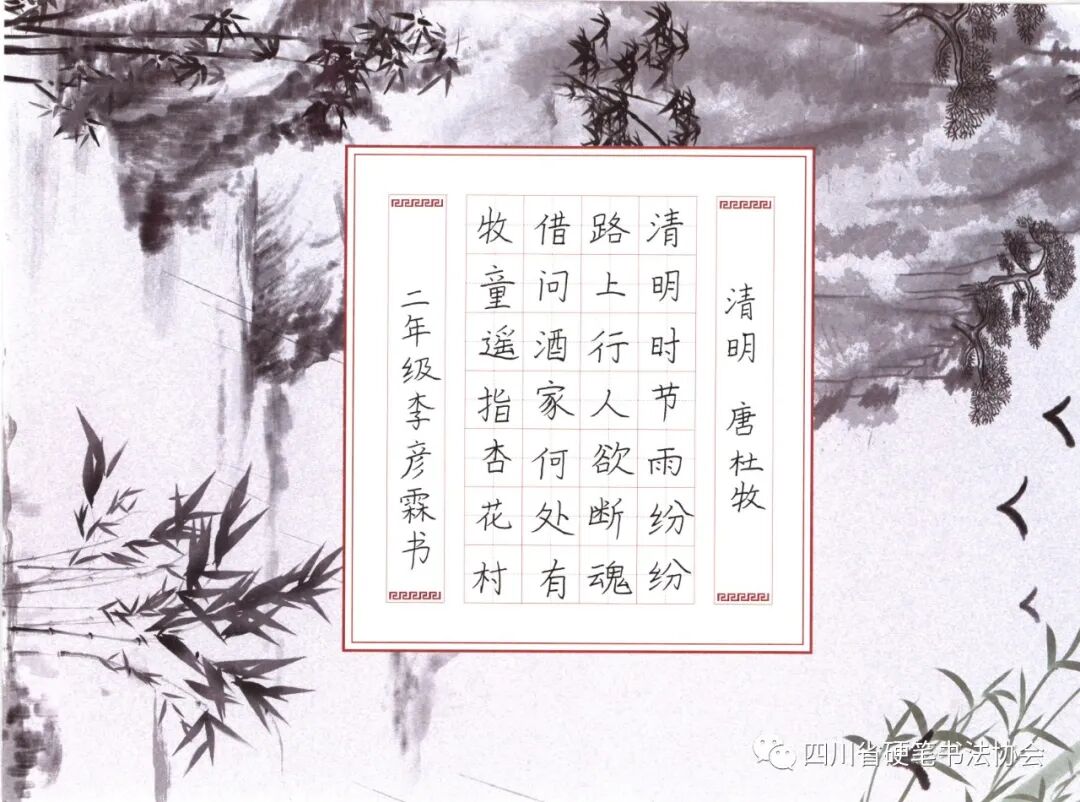 清明 唐杜牧
清明时节雨纷纷
路上行人欲断魂
借问酒家何处有
牧童遥指杏花村
二年级李彦霖书
四川省硬笔书法协会